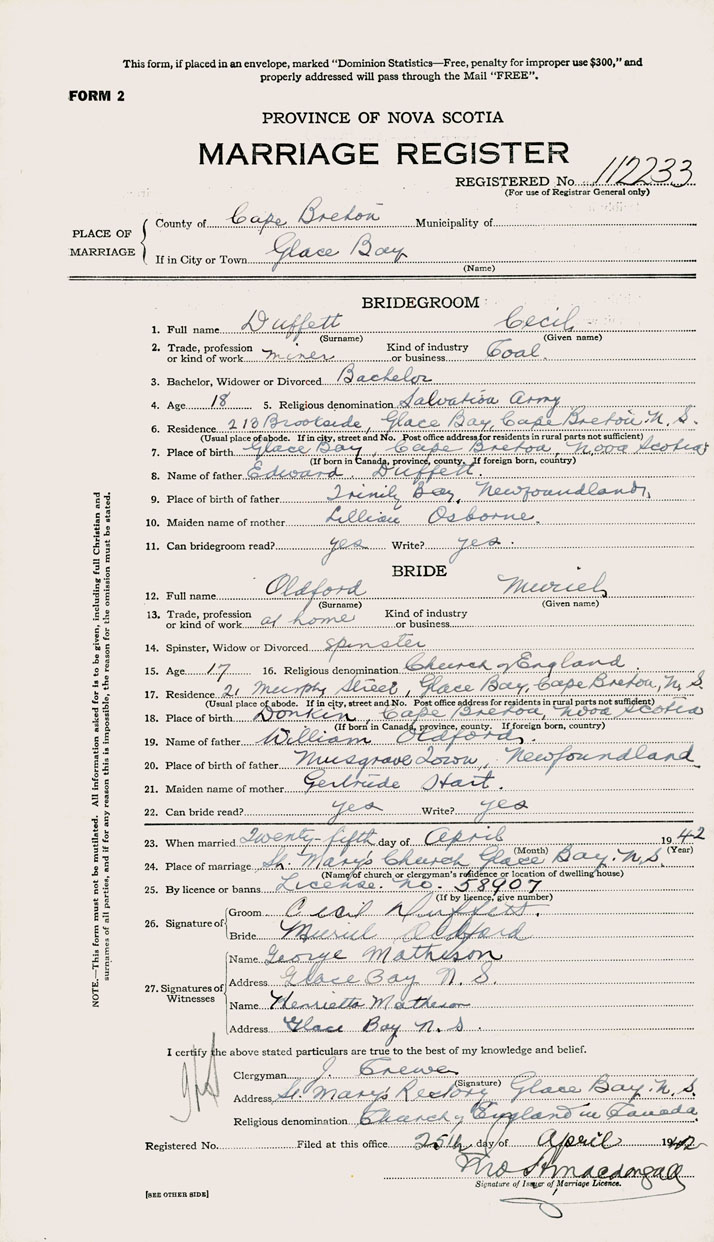 This form, if placed in an envelope, marked "Dominion Statistics—Free, penalty for improper use $300," and
properly addressed will pass through the Mail "FREE".
FORM 2
PROVINCE OF NOVA SCOTIA
MARRIAGE REGISTER
REGISTERED No. 112233
(For use of Registrar General only)
PLACE OF MARRIAGE
County of Cape Breton Municipality of
If in City or Town Glace Bay
(Name)
BRIDEGROOM
1. Full name Duffett Cecil
(Surname) (Given name)
2. Trade, profession or kind of work miner Kind of industry or business Coal
3. Bachelor, Widower or Divorced Bachelor
4. Age 18 5. Religious denomination Salvation Army
6. Residence 213 Brookside, Glace Bay, Cape Breton N. S.
(Usual place of abode. If in city, street and No. Post office address for residents in rural parts not sufficient)
7. Place of birth Glace Bay, Cape Breton, Nova Scotia
(If born in Canada, province, county. If foreign born, country)
8. Name of father Edward Duffett.
9. Place of birth of father Trinity Bay, Newfoundland,
10. Maiden name of mother Lillian Osborne.
11. Can bridegroom read? yes Write? yes.
BRIDE
12. Full name Oldford Muriel
(Surname) (Given name)
13. Trade, profession or kind of work at home Kind of industry or business
14. Spinster, Widow or Divorced spinster
15. Age 17 16. Religious denomination Church of England
17. Residence 21 Murphy Street, Glace Bay, Cape Breton, N. S.
(Usual place of abode. If in city, street and No. Post office address for residents in rural parts not sufficient)
18. Place of birth Donkin, Cape Breton, Nova Scotia
(If born in Canada, province, county. If foreign born, country)
19. Name of father William Oldford.
20. Place of birth of father Musgrave Town, Newfoundland
21. Maiden name of mother Gertrude Hart.
22. Can bride read? yes Write? yes
23. When married Twenty-fifth day of April 1942
(Month) (Year)
24. Place of marriage St. Mary's Church Glace Bay. N.S.
(Name of church or clergyman's residence or location of dwelling house)
25. By licence or banns License. No. 58907
(If by licence, give number)
26. Signature of
Groom Cecil Duffett.
Bride Muriel Oldford
27. Signatures of Witnesses
Name George Matheson
Address Glace Bay N. S.
Name Henrietta Matheson
Address Glace Bay N. S.
I certify the above stated particulars are true to the best of my knowledge and belief.
Clergyman J. Crewe
(Signature)
Address St. Mary's Rectory Glace Bay. N. S.
Religious denomination Church of England in Canada.
Registered No. Filed at this office 25th day of April 1942
Signature of Issuer of Marriage Licence.
[SEE OTHER SIDE]
NOTE.—This form must not be mutilated. All information asked for is to be given, including full Christian and
surnames of all parties, and if for any reason this is impossible, the reason for the omission must be stated.